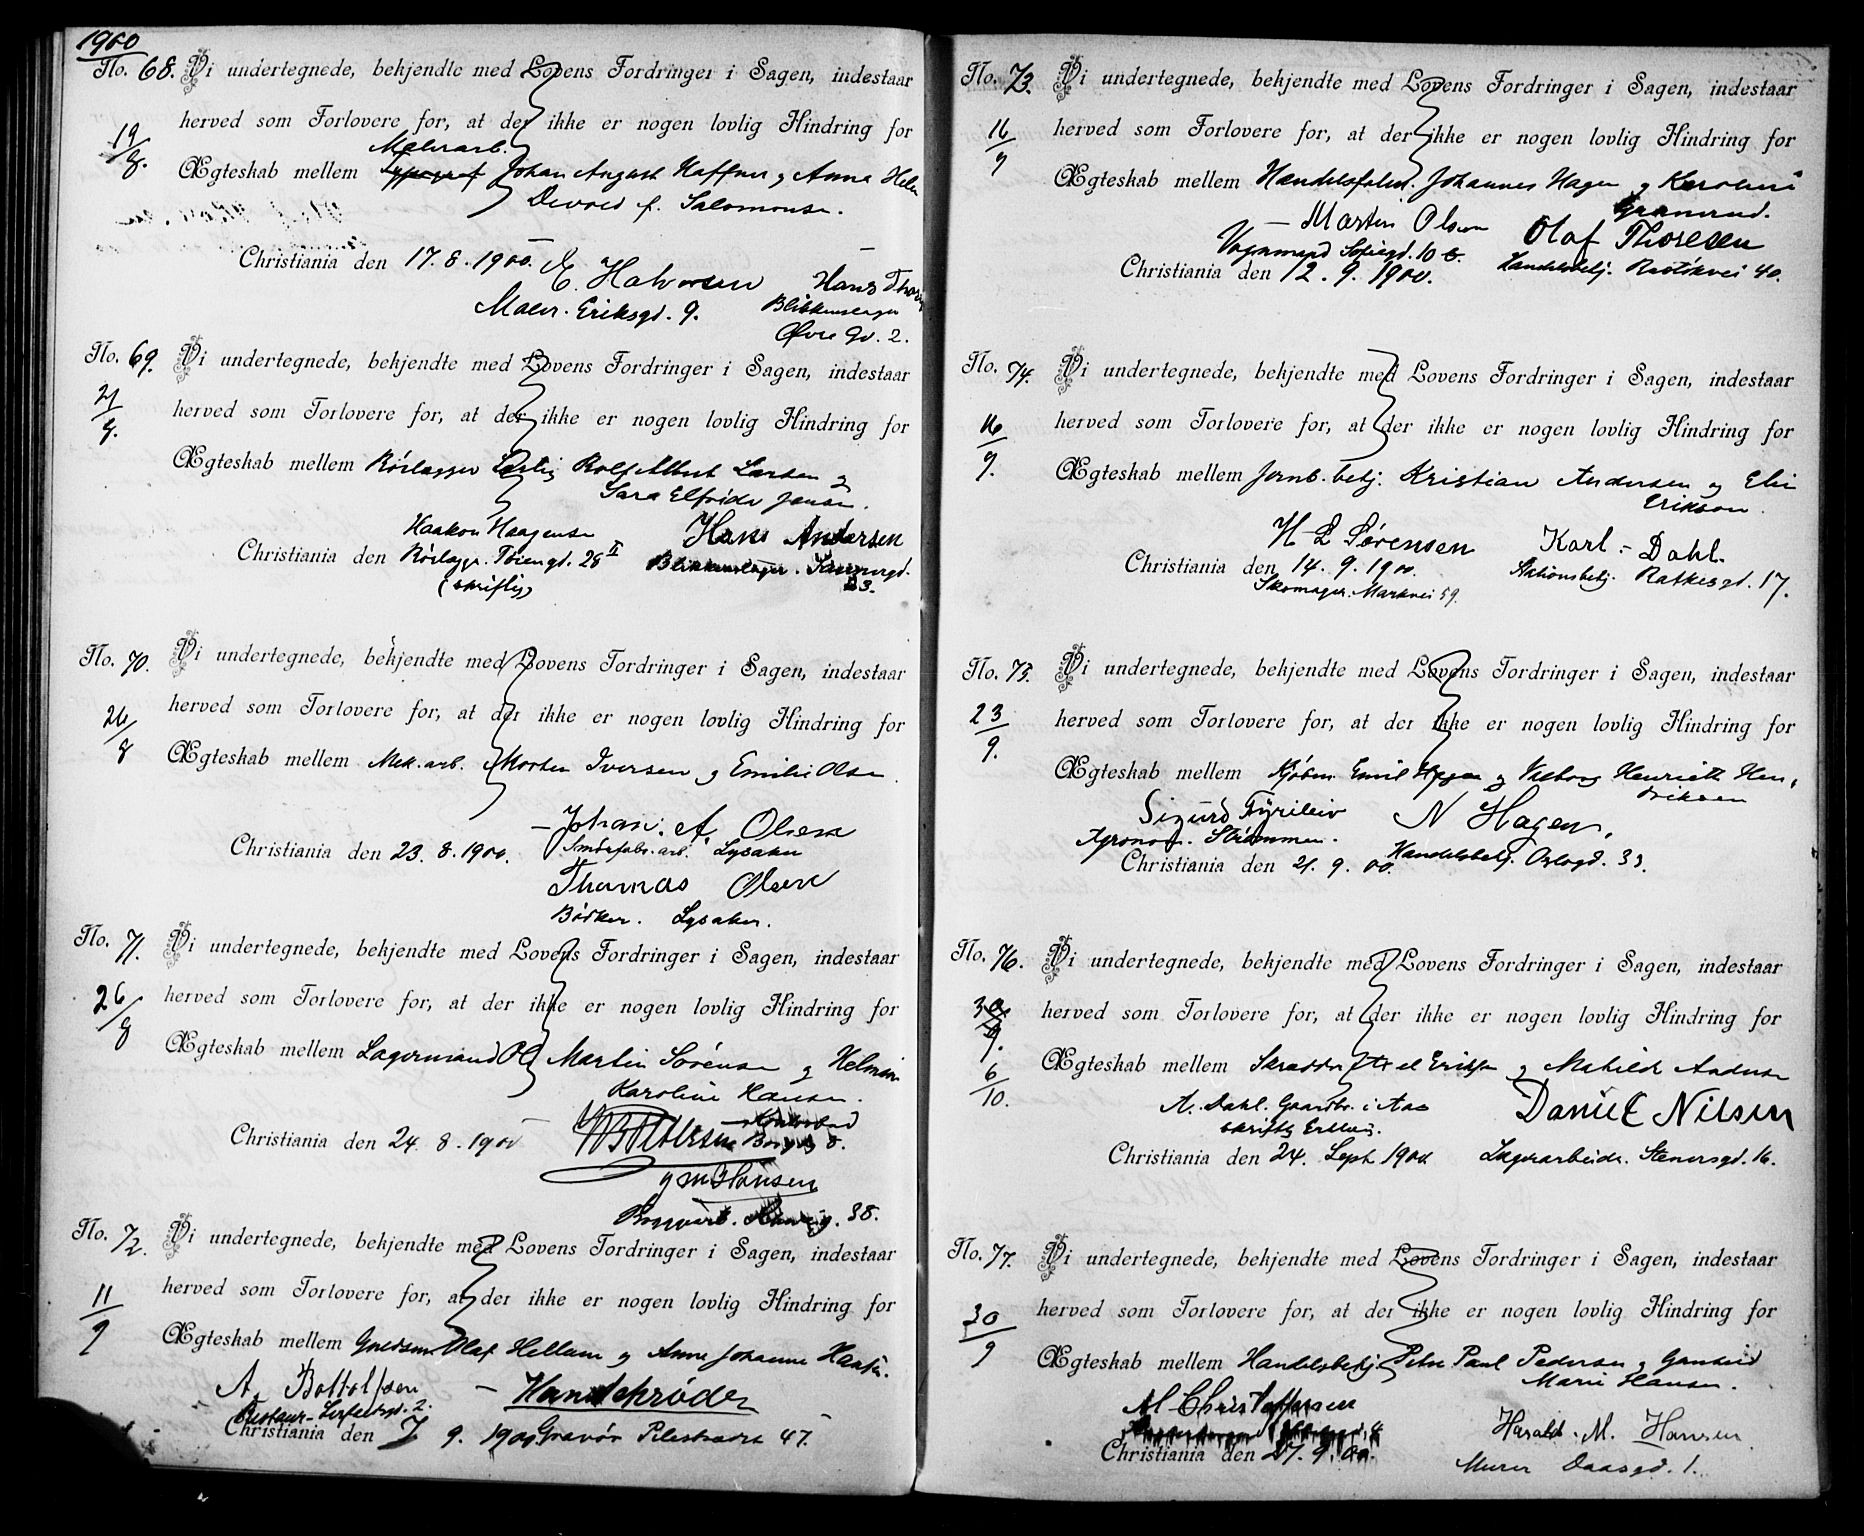 1900
No. 68. Vi undertegnede, bekjendte med Lovens Fordringer i Sagen, indestaar
19/8. herved som Forlovere for, at der ikke er nogen lovlig Hindring for
Malerarb.
Ægteskab mellem Typograf Johan August Haffner og Anna Helen
Devold f. Salomonsen.
Christiania den 17. 8. 1900. E. Halvorsen Hans
Maler. Eriksgd. 9. Blikkenslager
Øvre Gd. 2.
No. 69. Vi undertegnede, bekjendte med Lovens Fordringer i Sagen, indestaar
herved som Forlovere for, at der ikke er nogen lovlig Hindring for
Ægteskab mellem Rørlægger Rolf Albert Larsen og
Sara Elfride Jensen.
Haakon Haagensen Hans Andersen
Christiania den Rørlægger. Tøiengd. 28 II Blikkenslager.
(skriftlig) 23.
No. 70. Vi undertegnede, bekjendte med Lovens Fordringer i Sagen, indestaar
26/8 herved som Forlovere for, at der ikke er nogen lovlig Hindring for
Ægteskab mellem Mek. arb. Morten Iversen og Emilie Olsen.
Johan. A Olsen
Christiania den 23. 8. 1900. Smørfabr. arb. Lysaker
Thomas Olsen
Bødker. Lysaker.
No. 71. Vi undertegnede, bekjendte med Lovens Fordringer i Sagen, indestaar
26/8 herved som Forlovere for, at der ikke er nogen lovlig Hindring for
Ægteskab mellem Lagermand Ole Martin Sørensen og Helmine
Karoline Hansen.
Christiania den 24. 8. 1900 Petersen 8.
Hansen
38.
No. 72. Vi undertegnede, bekjendte med Lovens Fordringer i Sagen, indestaar
11/9 herved som Forlovere for, at der ikke er nogen lovlig Hindring for
Ægteskab mellem Guldsm. Olaf Hellum og Anne Johanne Hansen.
A. Bottolfsen – Hans Schrøder
Christiania den 7 9. 1900 Gravør Pilestrædet 47.
No. 73. Vi undertegnede, bekjendte med Lovens Fordringer i Sagen, indestaar
16/9 herved som Forlovere for, at der ikke er nogen lovlig Hindring for
Ægteskab mellem Handelsfuldm. Johannes Hagen og Karoline
Granerud.
– Martin Olsen Olaf Thoresen
Vognmand Sofiegd. 10 b.
Christiania den 12. 9. 1900. Handelsbetj. 40.
No. 74. Vi undertegnede, bekjendte med Lovens Fordringer i Sagen, indestaar
16/9. herved som Forlovere for, at der ikke er nogen lovlig Hindring for
Ægteskab mellem Jernb. betj. Kristian Andersen og Elin
Erikson.
H L Sørensen Karl – Dahl.
Christiania den 14. 9. 1900. Aktionsbetj. Ratkesgd. 17.
Skomager. Markvei 59.
No. 75. Vi undertegnede, bekjendte med Lovens Fordringer i Sagen, indestaar
23/9. herved som Forlovere for, at der ikke er nogen lovlig Hindring for
Ægteskab mellem Kjøbm. Emil Hagen og Valborg Henriette Hen-
driksen
Sigurd Fyrileiv N Hagen.
Agronom. Strømmen.
Christiania den 21. 9. 00. Handelsbetj. Oslogd. 33.
No. 76. Vi undertegnede, bekjendte med Lovens Fordringer i Sagen, indestaar
30/9. herved som Forlovere for, at der ikke er nogen lovlig Hindring for
6/10. Ægteskab mellem Skrædder Eriksen og Mathilde Andersen
A. Dahl. Gaardbr. i Aas Daniel Nilsen
skriftlig Erklæring.
Christiania den 24. Sept 1900. Lagerarbeider. Stenersgd. 16.
No. 77. Vi undertegnede, bekjendte med Lovens Fordringer i Sagen, indestaar
30/9 herved som Forlovere for, at der ikke er nogen lovlig Hindring for
Ægteskab mellem Handelsbetj. Peter Paul Pedersen og Gunhild
Marie Hansen.
M Christoffersen
Harald. M. Hansen.
Christiania den 27. 9. 00.
Murer Daasgd. 1.